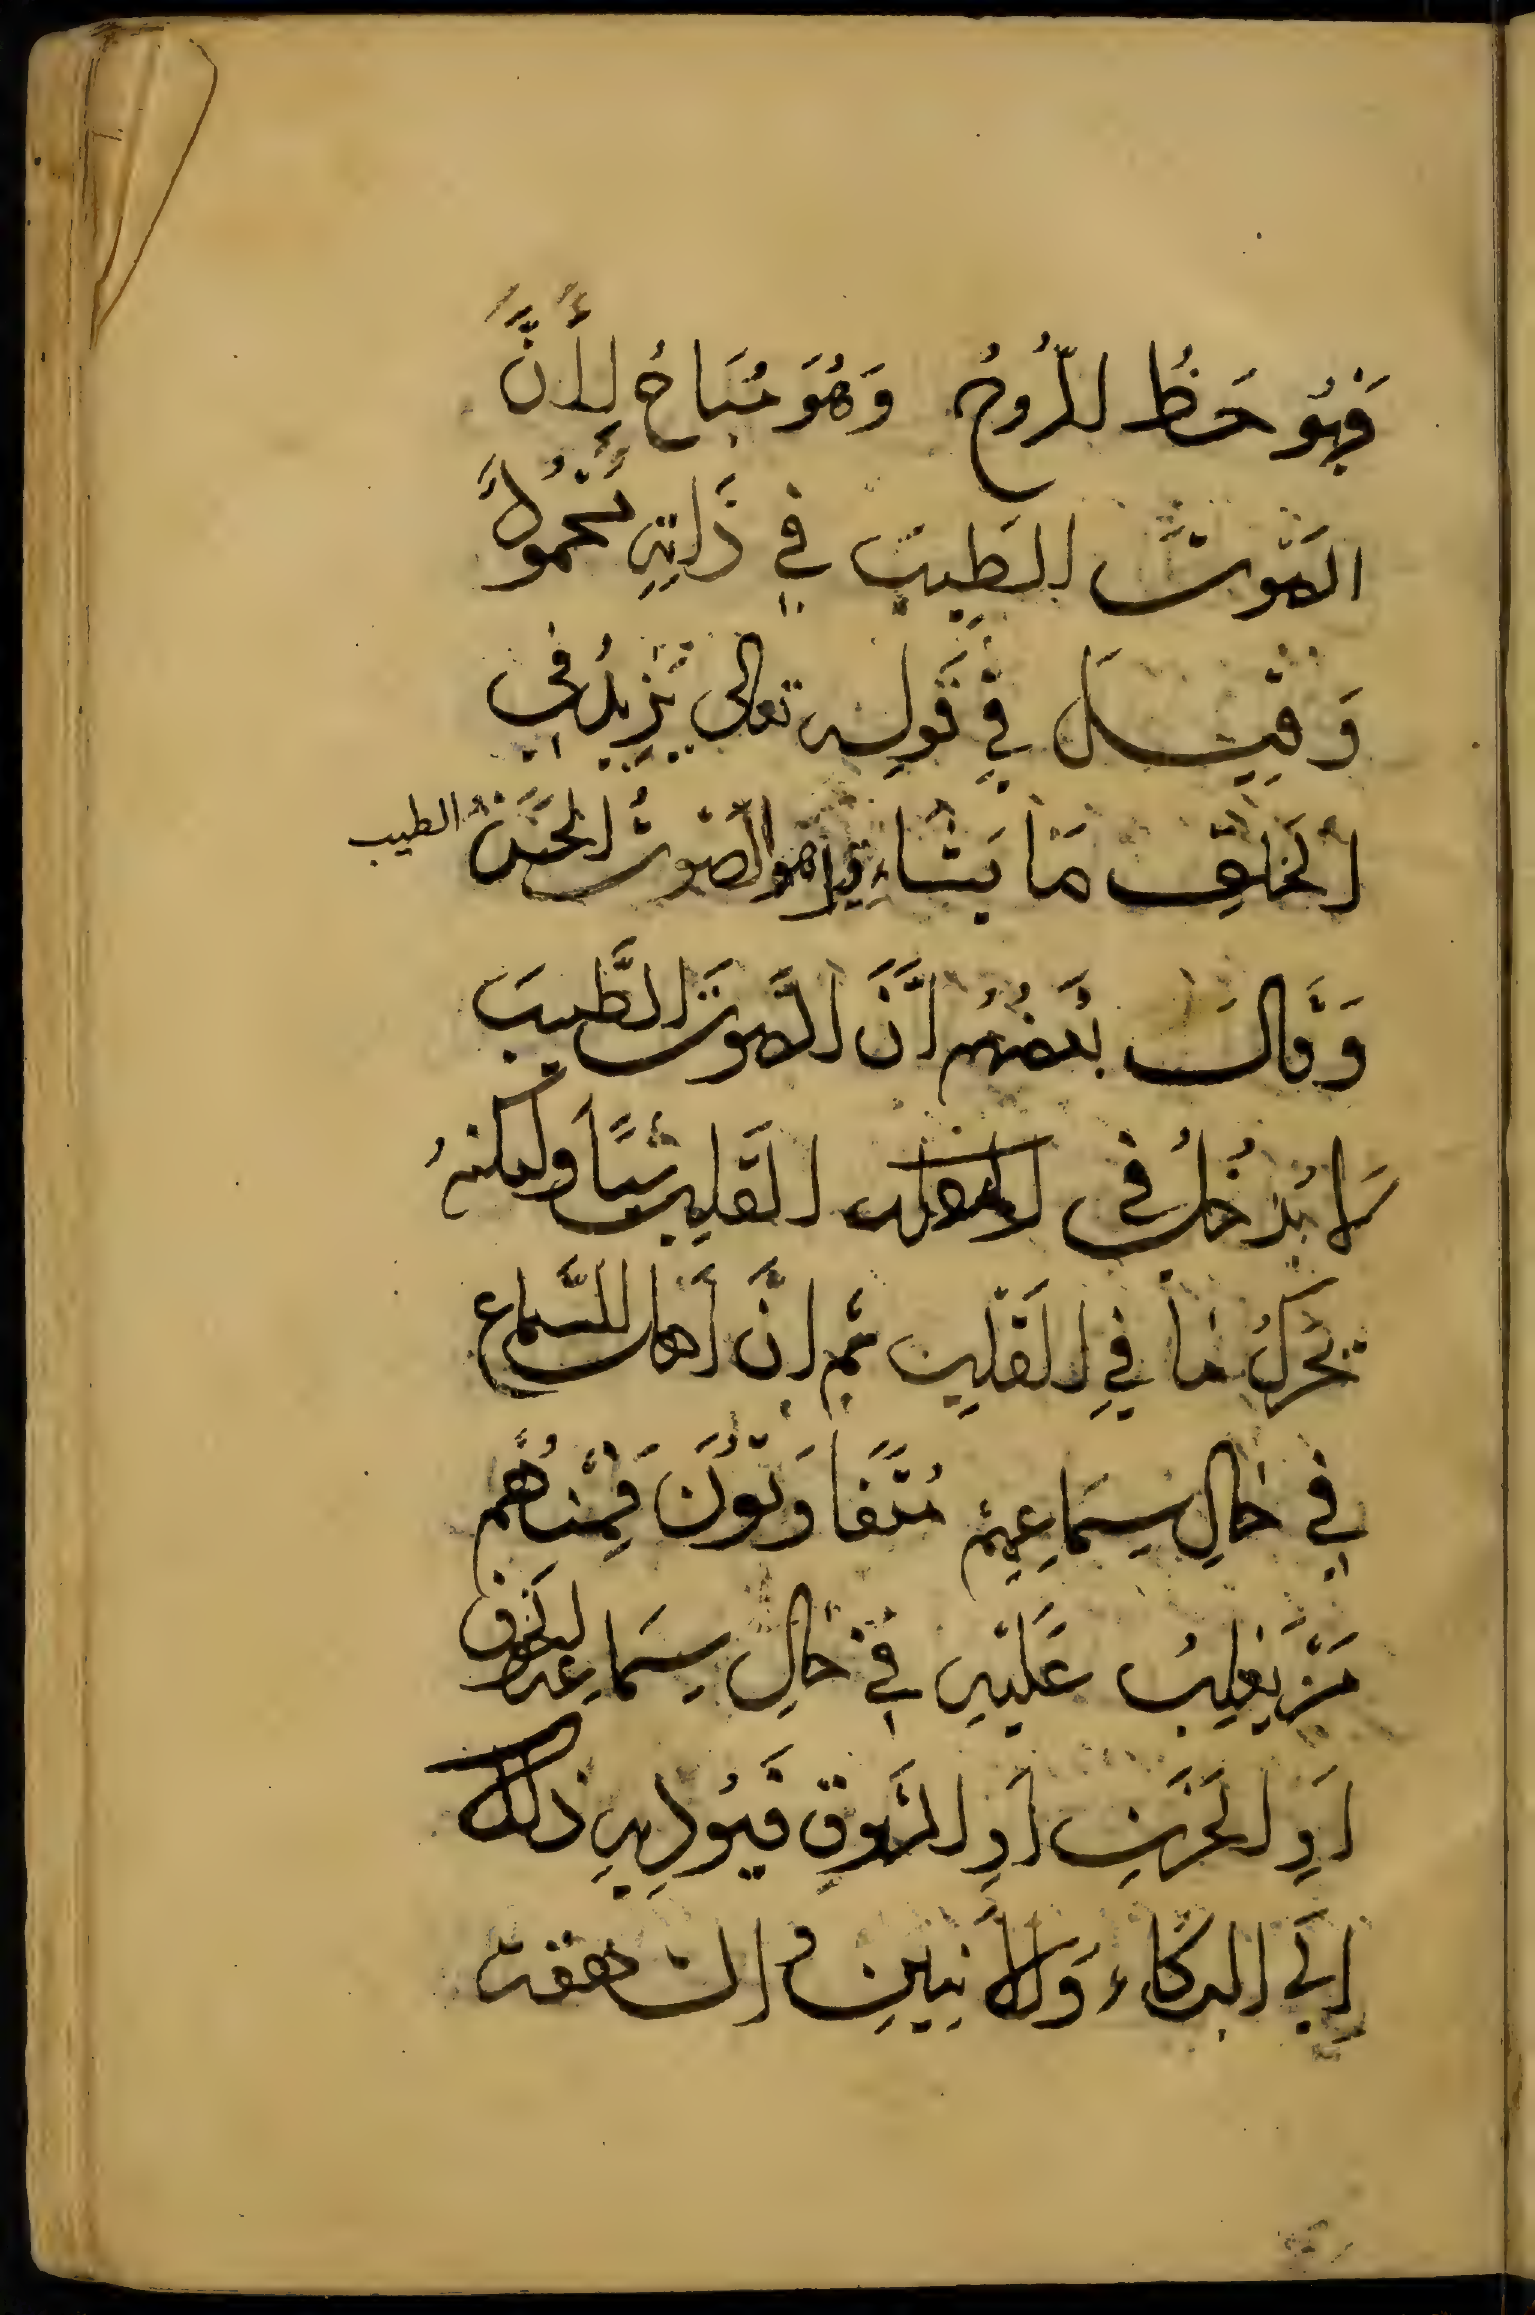 فَهُوَ حَظُ للرُّوحُ وَهُوَ مُبَاحُ لِأَنَّ
الصَّوتَ الطَيِبَ فِي ذَاتِهِ مَحمُولُ
وَقِيلَ فِي قَولِهِ تعالى يَزِيدُ في
الخَلقِ مَا يَشَاء قيل هو الصَوتُ الحَسَنُ الطيب
وَقَالَ بَعضُهُم انَّ الصَّوتَ الطَّيِبَ
لَا يُدخِلُ فى القَلبِ شَيًا ولكنهُ
يُحَرِكُ مَا فِي القَلبِ ثم انَّ اَهل السَّماع
فِي حَالِ سَمَاعِهِم مُتَفَاوَتُونَ فَمِنهُم
مَن يَغلِبُ عَلَيهِ فِي حَالِ سَمَاعِهِ الخَوف
اَوِ الحَزَنِ اَوِ الشَوقِ فَيُؤدِيهِ ذلك
اِلَى البكَاء وَالاَنِينِ والشهقة